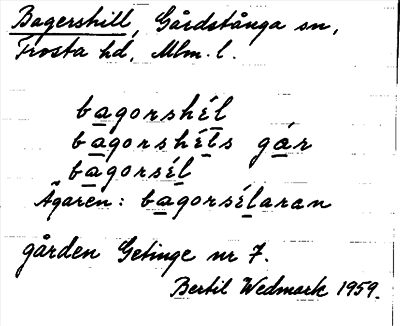 Bagershill, Gårdstånga sn,
Frosta hd, Mlm. l.
bagorshél
bagorshéls gár
bagorsél
Ägaren: bagorsélaran
gården Getinge nr 7.
Bertil Wedmark 1959.